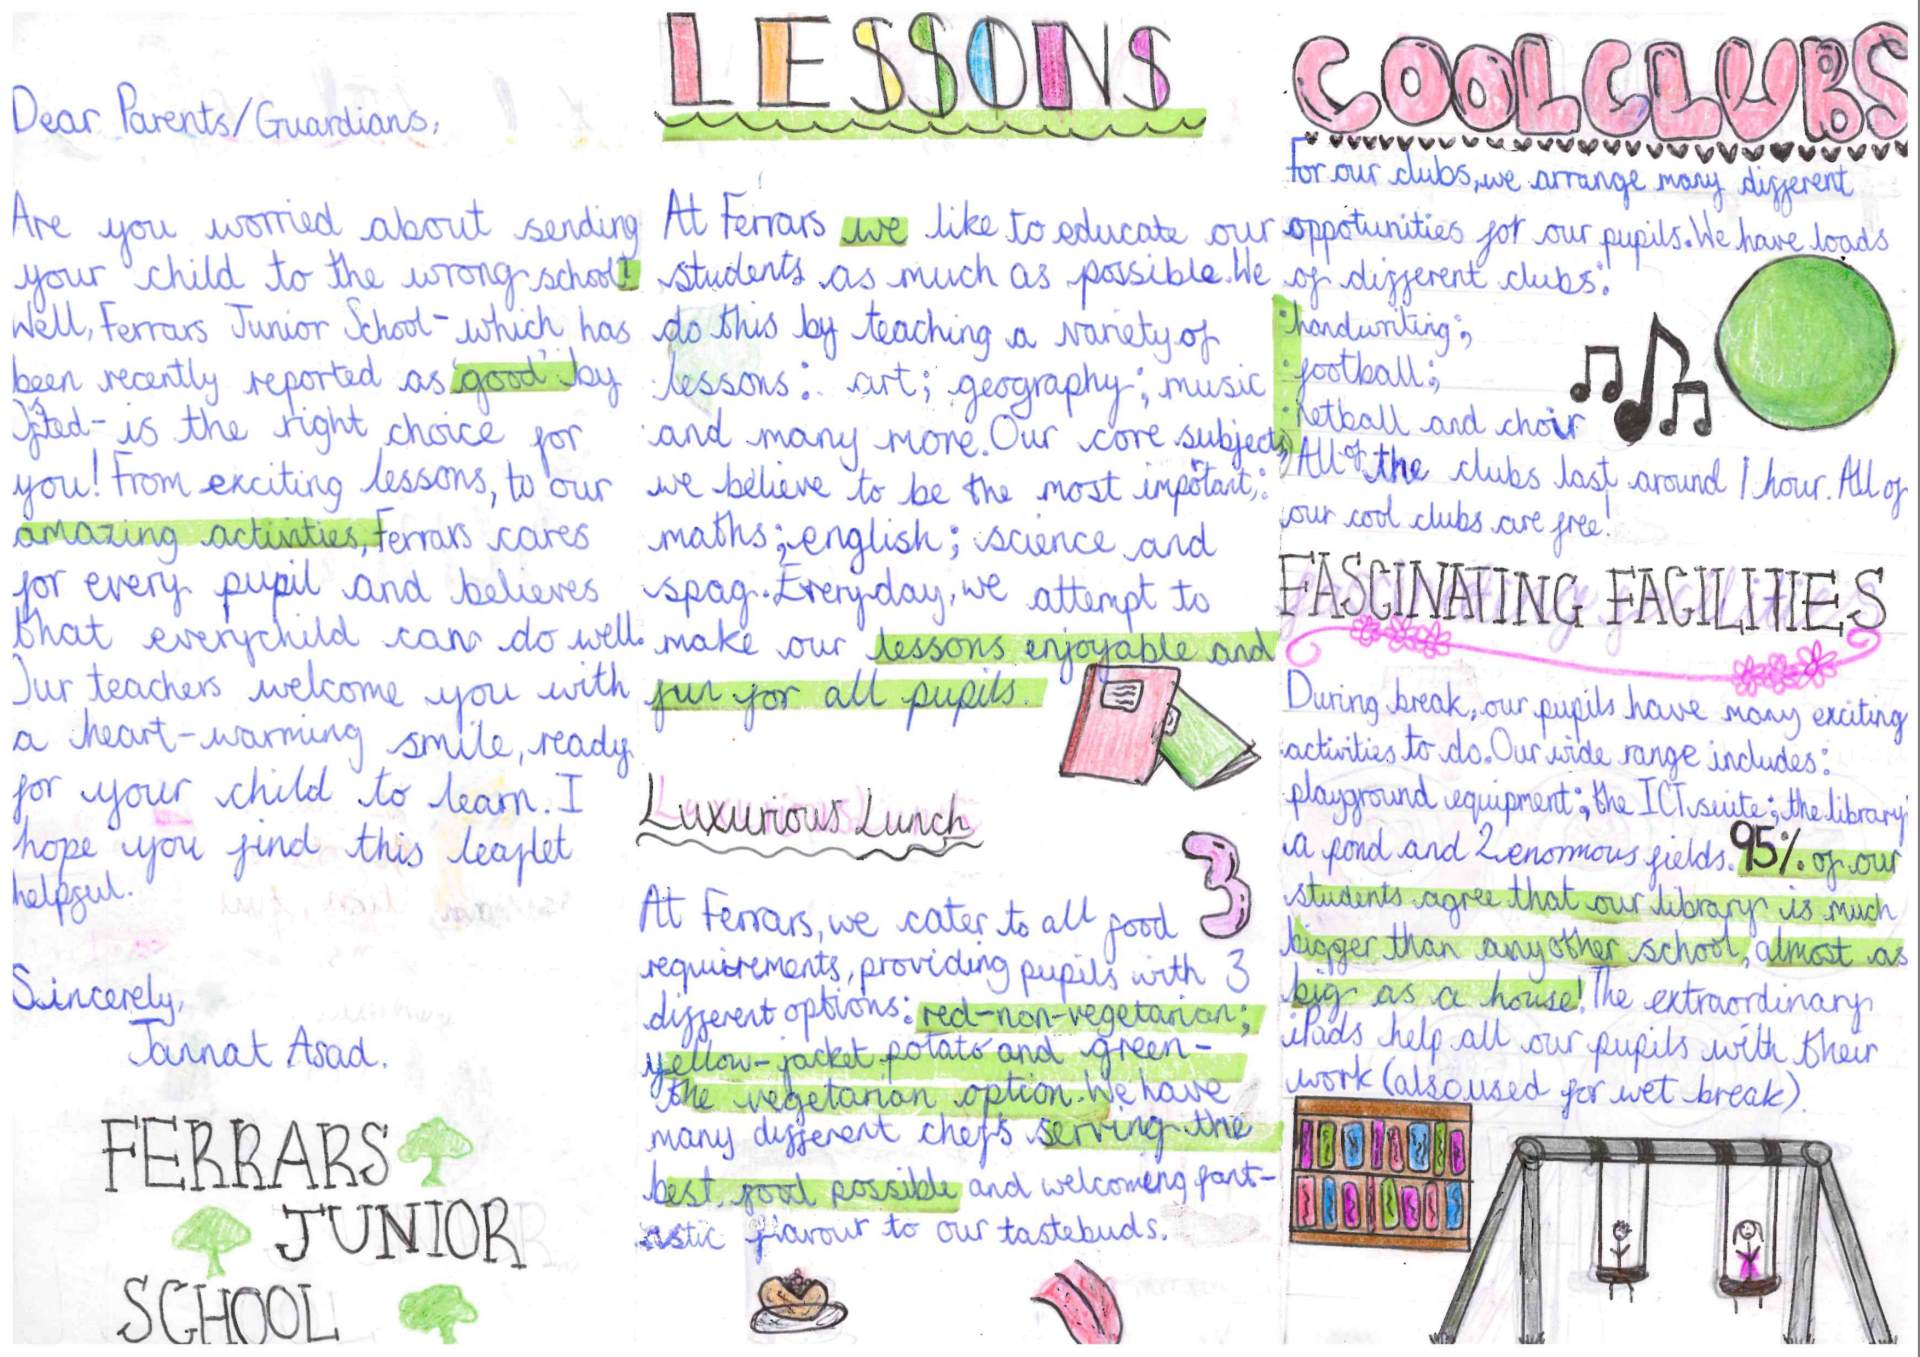 Dear Parents/Guardians,
Are you worried about sending
your child to the wrong school?
Well, Ferrars Junior School - which has
been recently reported as 'good' by
Ofsted - is the right choice for
you! From exciting lessons, to our
amazing activities, Ferrars cares
for every pupil and believes
that everychild can do well.
Our teachers welcome you with
a heart-warming smile, ready
for your child to learn. I
hope you find this leaflet
helpful.
Sincerely,
Jannat Asad.
FERRARS
JUNIOR
SCHOOL
LESSONS
At Ferrars we like to educate our
students as much as possible. We
do this by teaching a variety of
lessons: art; geography; music
and many more. Our core subjects,
we believe to be the most impotant,:
maths; english; science and
spag. Everyday, we attempt to
make our lessons enjoyable and
fun for all pupils.
Luxurious Lunch
3
At Ferrars, we cater to all food
requirements, providing pupils with 3
different options: red-non-vegetarian;
yellow-jacket potato and green-
the vegetarian option. We have
many different chefs serving the
best food possible and welcoming fant-
astic flavour to our tastebuds.
COOL CLUBS
For our clubs, we arrange many different
oppotunities for our pupils. We have loads
of different clubs:
• handwriting;
• football;
• netball and choir
All of the clubs last around 1 hour. All of
our cool clubs are free!
FASCINATING FACILITIES
During break, our pupils have many exciting
activities to do. Our wide range includes:
playground equipment; the ICT suite; the library
a pond and 2 enormous fields. 95% of our
students agree that our library is much
bigger than any other school, almost as
big as a house! The extraordinary
iPads help all our pupils with their
work (also used for wet break).